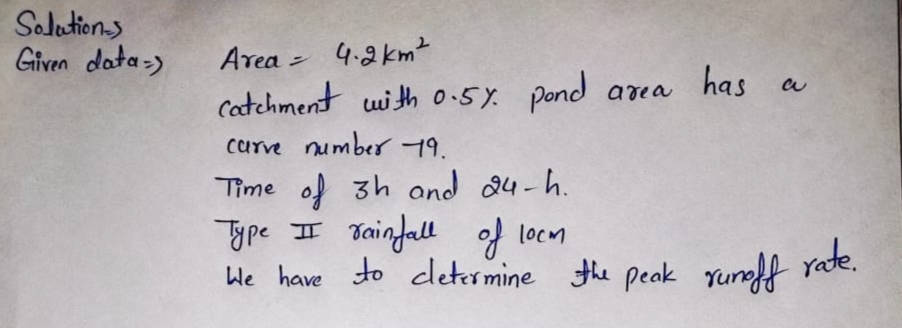 Solutions
Given data=> Area = 4.2 km²
catchment with 0.5%. pond area has a
curve number 79.
Time of 3h and 24-h.
Type II rainfall of 10cm
We have to determine the peak runoff rate.